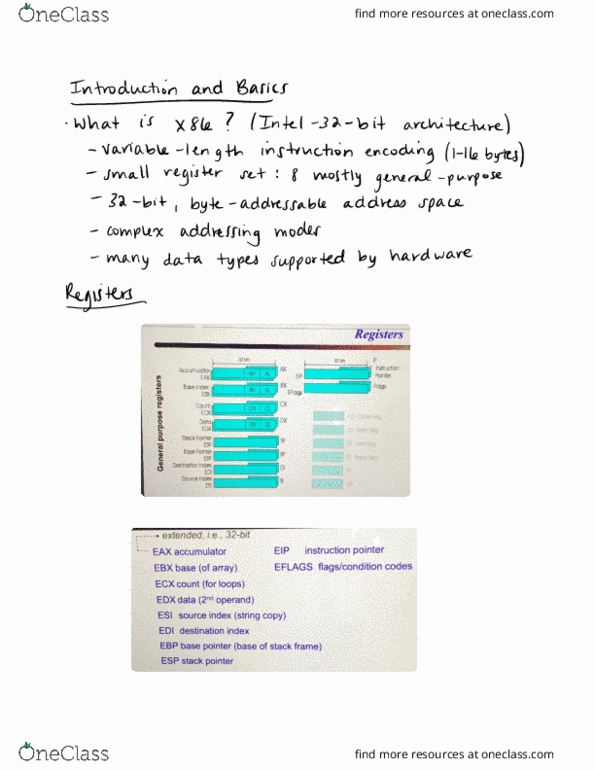 OneClass
find more resources at oneclass.com
Introduction and Basics
· What is x86? (Intel-32-bit architecture)
- variable-length instruction encoding (1-16 bytes)
- small register set: 8 mostly general-purpose
- 32-bit, byte-addressable address space
- complex addressing modes
- many data types supported by hardware
Registers
Registers
General purpose registers
Accumulator
EAX
AX
Base Index
EBX
BX
Count
ECX
CX
Data
EDX
DX
Stack Pointer
ESP
SP
Base Pointer
EBP
BP
Destination Index
EDI
DI
Source Index
ESI
SI
EIP
IP
Instruction
Pointer
EFlags
Flags
extended, i.e., 32-bit
EAX accumulator
EIP instruction pointer
EBX base (of array)
EFLAGS flags/condition codes
ECX count (for loops)
EDX data (2nd operand)
ESI source index (string copy)
EDI destination index
EBP base pointer (base of stack frame)
ESP stack pointer
OneClass
find more resources at oneclass.com